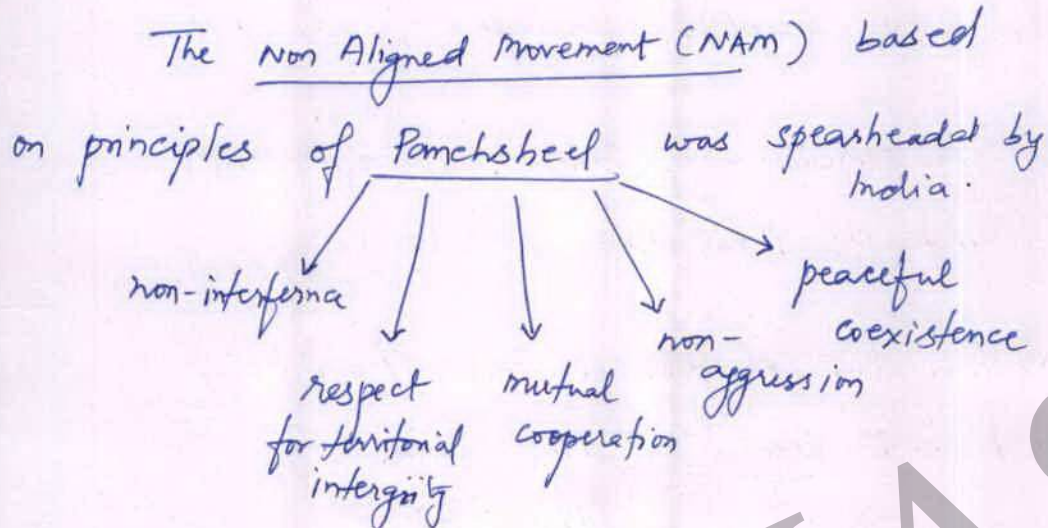 The Non Aligned Movement (NAM) based
on principles of Pamchsheel was spearheaded by
India.
non-interferna
respect
for territorial
intergrity
mutual
cooperation
non-
aggression
peaceful
coexistence